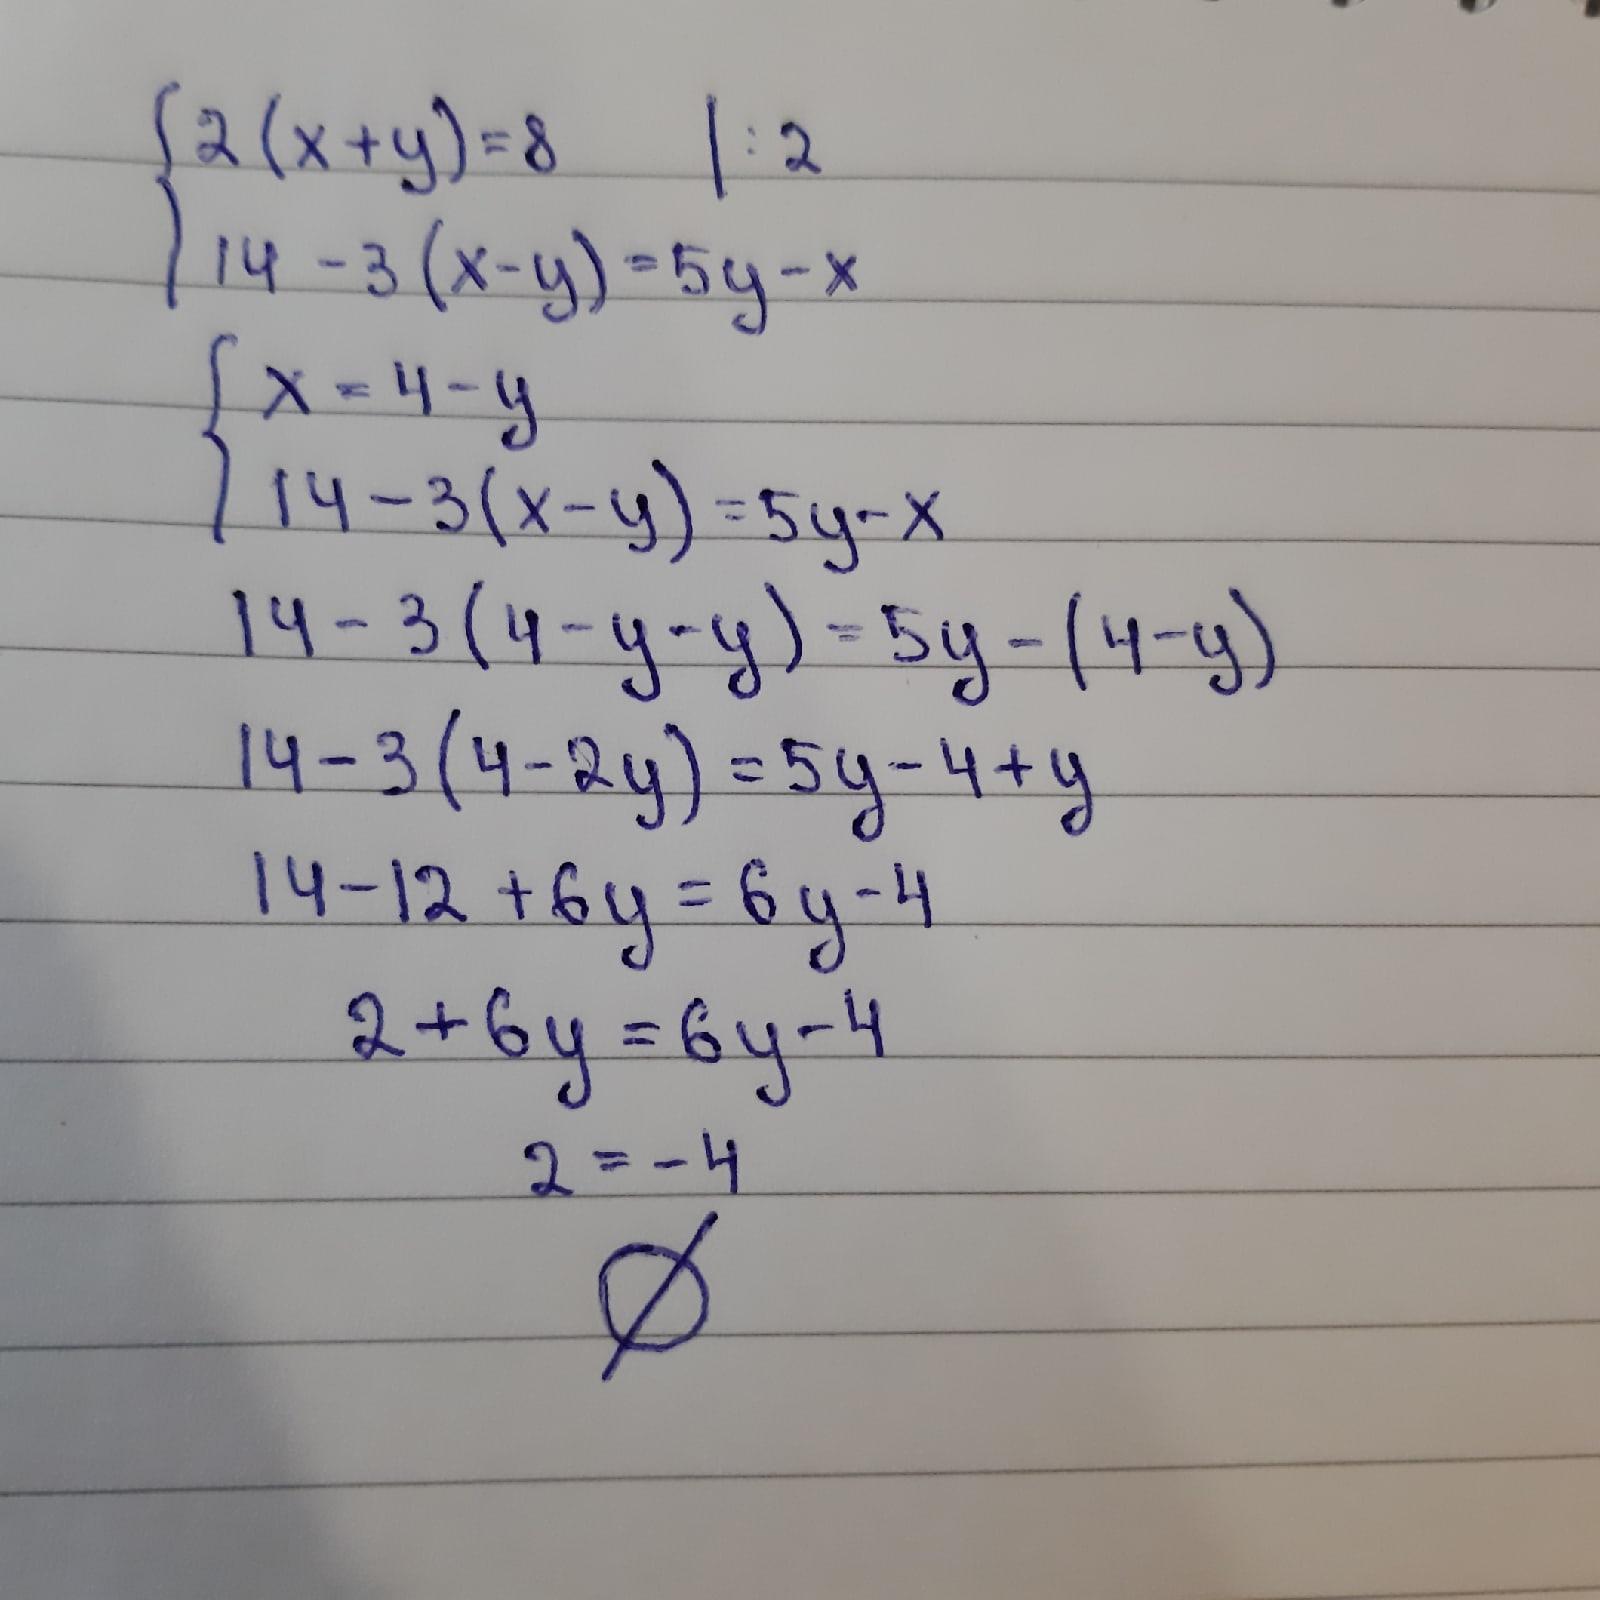 {2(x+y)=8 |:2
14-3(x-y)=5y-x
{x=4-y
14-3(x-y)=5y-x
14-3(4-y-y)=5y-(4-y)
14-3(4-2y)=5y-4+y
14-12+6y=6y-4
2+6y=6y-4
2=-4
∅